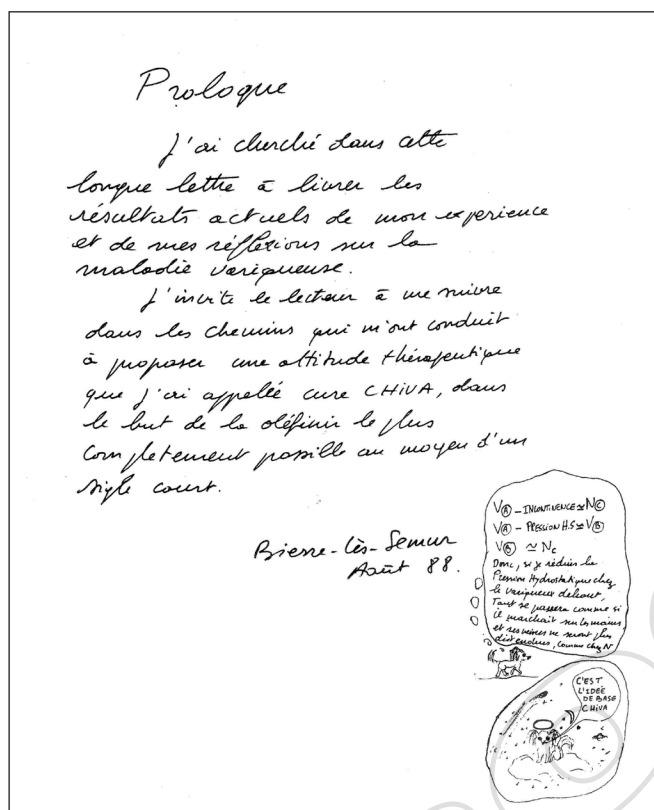 Prologue
J'ai cherché dans cette
longue lettre à livrer les
résultats actuels de mon experience
et de mes réflexions sur la
maladie variqueuse.
J'invite le lecteur à me suivre
dans les chemins qui m'ont conduit
à proposer une attitude thérapeutique
que j'ai appellée cure CHiVA, dans
le but de la définir le plus
completement possible au moyen d'un
sigle court.
Bierre-lès-Semur
Août 88.
VⒶ - INCONTINENCE ≃ NⒸ
VⒶ - PRESSION H.S ≃ VⒷ
VⒷ ≃ Nc
Donc, si je réduis la
Pression Hydrostatique chez
le variqueux debout,
Tout se passera comme si
il marchait sur les mains
et ses veines ne seront plus
distendues, comme chez N
C'EST
L'IDÉE
DE BASE
CHiVA